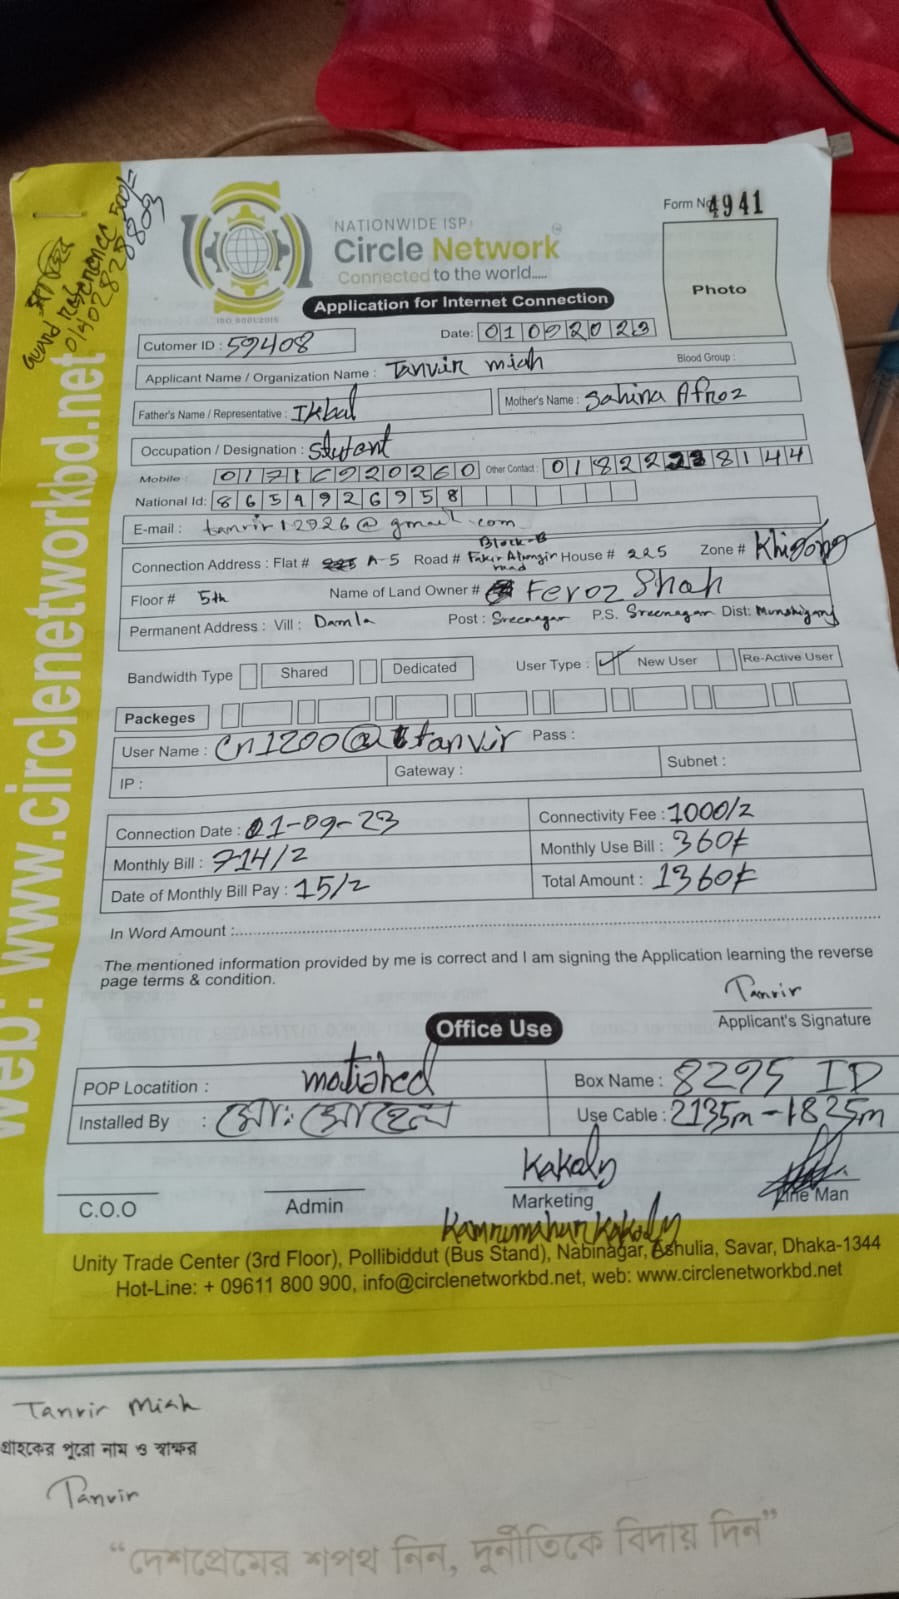 Guard reference 500/-
01402828803
web: www.circlenetworkbd.net
NATIONWIDE ISP
Circle Network
Connected to the world.....
ISO 9001:2015
Form No 4941
Photo
Application for Internet Connection
Cutomer ID : 59408 Date: 01092023
Applicant Name / Organization Name : Tanvir miah Blood Group :
Father's Name / Representative : Ikbal Mother's Name : Sahina Afroz
Occupation / Designation : Stutant
Mobile : 01716920260 Other Contact : 01822238144
National Id: 8654926958
E-mail : tanvir12926@gmail.com
Connection Address : Flat # A-5 Road # Block-B Fakir Alamgir road House # 225 Zone # Khigong
Floor # 5th Name of Land Owner # Feroz Shah
Permanent Address : Vill : Damla Post : Sreenagar P.S. Sreenagar Dist: Munshigonj
Bandwidth Type Shared Dedicated User Type : ✓ New User Re-Active User
Packeges
User Name : Cn1200@tanvir Pass :
IP : Gateway : Subnet :
Connection Date : 01-09-23 Connectivity Fee : 1000/2
Monthly Bill : 714/2 Monthly Use Bill : 360৳
Date of Monthly Bill Pay : 15/2 Total Amount : 1360৳
In Word Amount :
The mentioned information provided by me is correct and I am signing the Application learning the reverse
page terms & condition.
Tanvir
Applicant's Signature
Office Use
POP Locatition : motiahed Box Name : 8295 ID
Installed By : মো: সোহেল Use Cable : 2135m-1825m
Kakoly
C.O.O Admin Marketing Line Man
Kamrumahur Kakoly
Unity Trade Center (3rd Floor), Pollibiddut (Bus Stand), Nabinagar, Ashulia, Savar, Dhaka-1344
Hot-Line: + 09611 800 900, info@circlenetworkbd.net, web: www.circlenetworkbd.net
Tanvir Miah
গ্রাহকের পুরো নাম ও স্বাক্ষর
Tanvir
“দেশপ্রেমের শপথ নিন, দুর্নীতিকে বিদায় দিন”